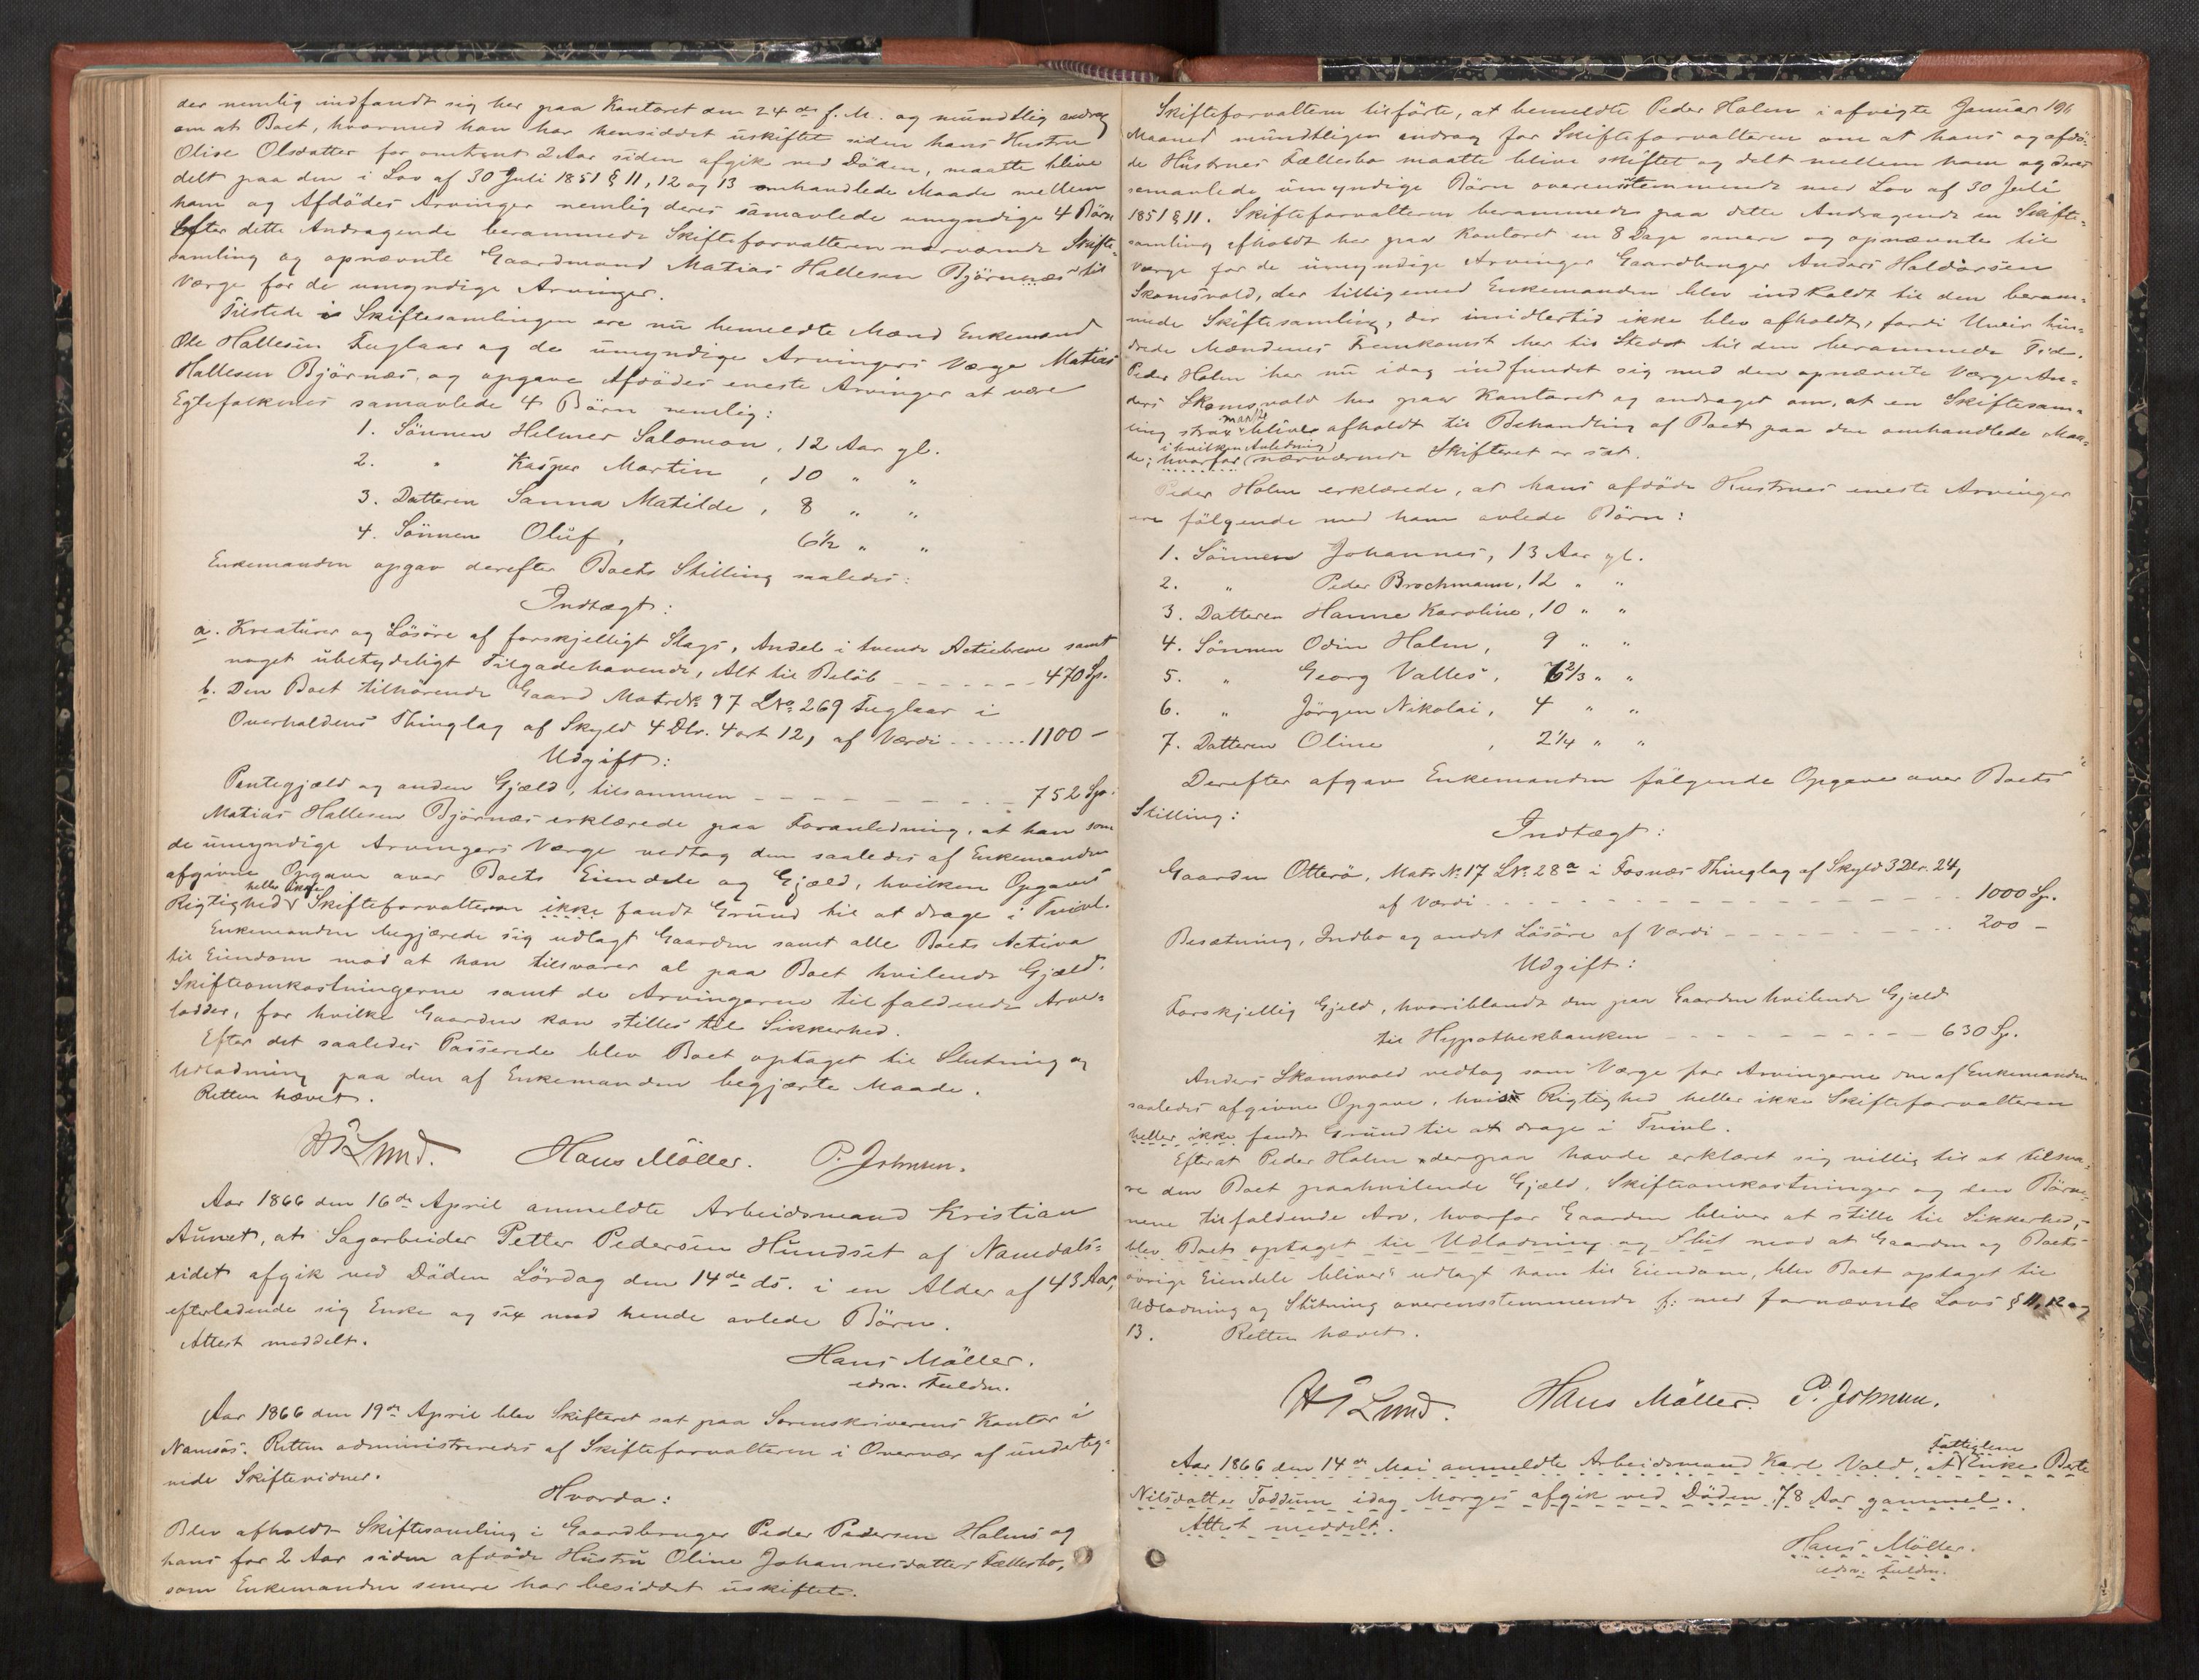 der nemlig indfandt sig her paa Kontoret den 24de f. M. og mundtlig androg
om at Boet, hvormed han har hensiddet uskiftet siden hans Hustru
Olise Olsdatter for omtrent 2 Aar siden afgik ved Døden, maatte blive
delt paa den i Lov af 30 Juli 1851 § 11, 12 og 13 omhandlede Maade mellem
ham og Afdødes Arvinger nemlig deres samavlede umyndige 4 Børn
Efter dette Andragende berammede Skifteforvalteren nærværende Skifte-
samling og opnævnte Gaardmand Matias Hallesen Bjørnnæs til
Værge for de umyndige Arvinger.
Tilstede i Skiftesamlingen ere nu bemeldte Mænd Enkemand
Ole Hallesen Fuglaar og de umyndige Arvingers Værge Matias
Hallesen Bjørnæs, og opgave Afdødes eneste Arvinger at være
Egtefolkenes samavlede 4 Børn nemlig:
1. Sønnen Helmer Salomon, 12 Aar gl.
2. " Kasper Martin, 10 " "
3. Datteren Sanna Matilde, 8 " "
4. Sønnen Oluf, 6 1/2 " "
Enkemanden opgav derefter Boets Stilling saaledes:
Indtægt:
a. Kreaturer og Løsøre af forskjelligt Slags, Andel i tvende Actiebreve samt
noget ubetydeligt Tilgodehavende, Alt til Beløb - - - - - - - 470 Sp.
b. Den Boet tilhørende Gaard Matr. No 97 LNo 269 Fuglaar i
Overhaldens Thinglag af Skyld 4 Dlr. 4 ort 12, af Værdi ...... 1100 –
Udgift:
Pantegjæld og anden Gjæld, tilsammen - - - - - - - - - - 752 Sp.
Matias Hallesen Bjørnæs erklærede paa Foranledning, at han som
de umyndige Arvingers Værge vedtog den saaledes af Enkemanden
afgivne Opgave over Boets Eiendele og Gjæld, hvilken Opgaves
heller ikke
Rigtighed Skifteforvalteren ikke fandt Grund til at drage i Tvivl.
Enkemanden begjærede sig udlagt Gaarden samt alle Boets Activa
til Eiendom mod at han tilsvarer al paa Boet hvilende Gjæld,
Skifteomkostningerne samt de Arvingerne tilfaldende Arve-
lodder, for hvilke Gaarden kan stilles til Sikkerhed.
Efter det saaledes Passerede blev Boet optaget til Slutning og
Udlodning paa den af Enkemanden begjærte Maade.
Retten hævet.
Lund. Hans Møller. P. Johnsen.
Aar 1866 den 16de April anmeldte Arbeidsmand Kristian
Aunet, at Sagarbeider Petter Pedersen Hundset af Namdals-
eidet afgik ved Døden Lørdag den 14de ds. i en Alder af 43 Aar,
efterladende sig Enke og sex med hende avlede Børn.
Attest meddelt.
Hans Møller.
edsv. Fuldm.
Aar 1866 den 19de April blev Skifteret sat paa Sorenskriverens Kontor i
Namsos. Retten administreredes af Skifteforvalteren i Overvær af underteg-
nede Skiftevidner.
Hvorda:
Blev afholdt Skiftesamling i Gaardbruger Peder Pedersen Holms og
hans for 2 Aar siden afdøde Hustru Oline Johannesdatters Fællesbo,
som Enkemanden senere har besiddet uskiftet.
196
Skifteforvalteren tilførte, at bemeldte Peder Holm i afvigte Januar
Maaned mundtligen androg for Skifteforvalteren om at hans og afdø-
de Hustrues Fællesbo maatte blive skiftet og delt mellem ham og deres
samavlede umyndige Børn overensstemmende med Lov af 30 Juli
1851 § 11. Skifteforvalteren berammede paa dette Andragende en Skifte-
samling afholdt her paa Kontoret en 8 Dage senere og opnævnte til
Værge for de umyndige Arvinger Gaardbruger Anders Haldorsen
Skomsvold, der tilligemed Enkemanden blev indkaldt til den beram-
mede Skiftesamling, der imidlertid ikke blev afholdt, fordi Uveir hin-
drede Mændenes Fremkomst her til Stedet til den berammede Tid.
Peder Holm har nu idag indfundet sig med den opnævnte Værge An-
ders Skomsvold her paa Kontoret og andraget om, at en Skiftesam-
maatte
ling strax blive afholdt til Behandling af Boet paa den omhandlede Maa-
i hvilken Anledning
de; hvorfor nærværende Skifteret er sat.
Peder Holm erklærede, at hans afdøde Hustrues eneste Arvinger
ere følgende med ham avlede Børn:
1. Sønnen Johannes, 13 Aar gl.
2. " Peder Brochmann, 12 " "
3. Datteren Hanne Karoline, 10 " "
4. Sønnen Odin Holm, 9 " "
5. " Georg Valles, 6 2/3 " "
6. " Jørgen Nikolai, 4 " "
7. Datteren Oline, 2 1/4 " "
Derefter afgav Enkemanden følgende Opgave over Boets
Stilling:
Indtægt:
Gaarden Otterø, Matr No 17 LNo 28a i Fosnæs Thinglag af Skyld 3 Dlr. 24,
af Værdi - - - - - - - - - - 1000 Sp.
Besætning, Indbo og andet Løsøre af Værdi - - - - - - - 200 –
Udgift:
Forskjellig Gjeld, hvoriblandt den paa Gaarden hvilende Gjæld
til Hypothekbanken - - - - - - - - - - 630 Sp.
Anders Skomsvold vedtog som Værge for Arvingerne den af Enkemanden
saaledes afgivne Opgave, hvis Rigtighed heller ikke Skifteforvalteren
heller ikke fandt Grund til at drage i Tvivl.
Efterat Peder Holm derpaa havde erklæret sig villig til at tilsva-
re den Boet paahvilende Gjæld, Skifteomkostninger og den Bør-
nene tilfaldende Arv, hvorfor Gaarden bliver at stille til Sikkerhed,
blev Boet optaget til Udlodning og Slut mod at Gaarden og Boets
øvrige Eiendele bliver udlagt ham til Eiendom, blev Boet optaget til
Udlodning og Slutning overensstemmende f: med fornævnte Lovs § 11, 12 og
13. Retten hævet.
Lund. Hans Møller. P. Johnsen.
Fattiglem
Aar 1866 den 14de Mai anmeldte Arbeidsmand Karl Vold, at Enke Berte
Nilsdatter Toddum idag Morges afgik ved Døden 78 Aar gammel.
Attest meddelt.
Hans Møller.
edsv. Fuldm.